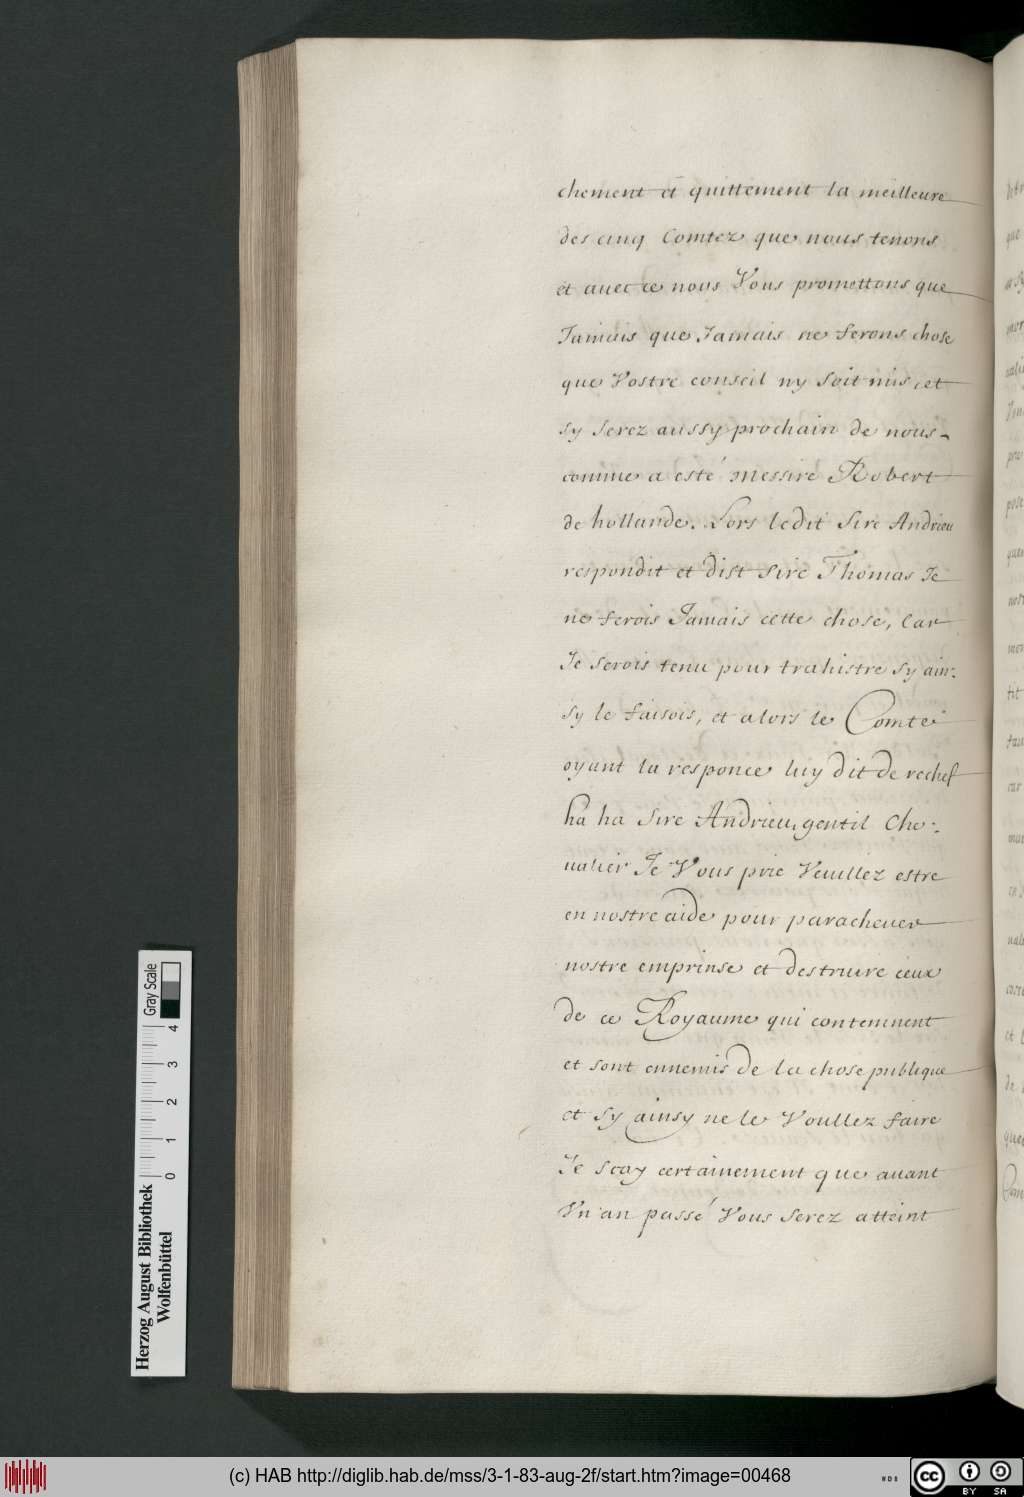 chement et quittement la meilleure
des cinq Comtez que nous tenons
et auec ce nous Vous promettons que
Jamais que Jamais ne ferons chose
que Vostre conseil ny soit mis, et
sy serez aussy prochain de nous
comme a esté messire Robert
de hollande. Lors ledit Sire Andrieu
respondit et dist Sire Thomas Je
ne ferois Jamais cette chose, Car
Je serois tenu pour trahistre sy ain:
sy le faisois, et alors le Comte
oyant la responce luy dit de rechef
ha ha Sire Andrieu, gentil Che:
ualier Je Vous prie Veuillez estre
en nostre aide pour paracheuer
nostre emprinse et destruire ceux
de ce Royaume qui contemnent
et sont ennemis de la chose publique
et sy ainsy ne le Voullez faire
Je scay certainement que auant
Vn an passé Vous serez atteint
Herzog August Bibliothek
Wolfenbüttel
0 1 2 3 4
Gray Scale
(c) HAB http://diglib.hab.de/mss/3-1-83-aug-2f/start.htm?image=00468
WDB
cc BY SA